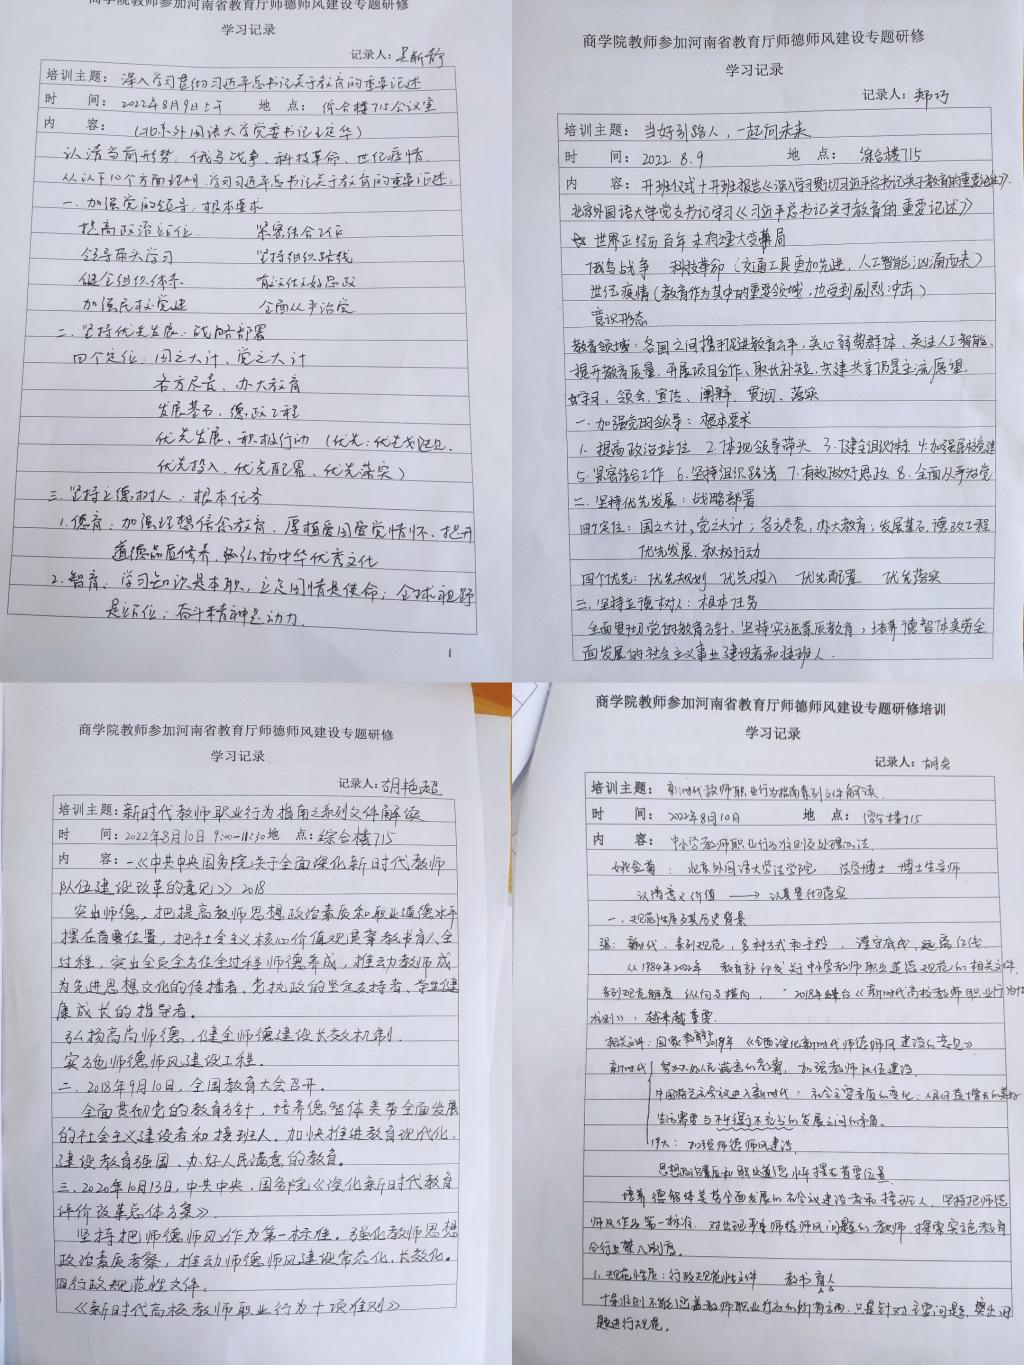 商学院教师参加河南省教育厅师德师风建设专题研修
学习记录
记录人：
培训主题：深入学习贯彻习近平总书记关于教育的重要论述
时 间：2022年8月9日上午 地 点：综合楼715会议室
内 容：（北京外国语大学党委书记王定华）
认清当前形势：俄乌战争、科技革命、世纪疫情.
从以下10个方面 学习习近平总书记关于教育的重要论述.
一. 加强党的领导：根本要求
提高政治站位 紧密结合工作
领导带头学习 坚持组织路线
健全组织体系 有效做好思政
加强民校党建 全面从严治党
二. 坚持优先发展：战略部署
四个定位：国之大计、党之大计
各方尽责、办大教育
发展基石、德政工程
优先发展、积极行动（优先：优先规划
优先投入、优先配置、优先落实）
三. 坚持立德树人：根本任务
1. 德育：加强理想信念教育、厚植爱国爱党情怀、提升
道德品质修养、弘扬中华优秀文化
2. 智育：学习知识是本职，立足国情是使命；全球视野
是站位；奋斗精神是动力.
1
商学院教师参加河南省教育厅师德师风建设专题研修
学习记录
记录人：郑巧
培训主题：当好引路人，一起向未来
时 间：2022 8.9 地 点：综合楼715
内 容：开班仪式+开班报告《深入学习贯彻习近平总书记关于教育的重要论述》.
北京外国语大学党支书记学习《习近平总书记关于教育的重要论述》
世界正经历百年未有之大变局
俄乌战争 科技革命（交通工具更加先进，人工智能汹涌而来）
世纪疫情（教育作为其中的重要领域，也受到剧烈冲击）
意识形态
教育领域：各国之间携手促进教育公平，关心弱势群体、关注人工智能、
提升教育质量、开展项目合作、取长补短，共建共享仍是主流愿望.
学习、领会、宣传、阐释、贯彻、落实
一. 加强党的领导：根本要求
1. 提高政治站位 2. 体现领导带头 3. 健全组织体系 4. 加强民校党建
5. 紧密结合工作 6. 坚持组织路线 7. 有效做好思政 8. 全面从严治党
二. 坚持优先发展：战略部署
四个定位：国之大计，党之大计；各方尽责，办大教育；发展基石，德政工程
优先发展、积极行动
四个优先：优先规划 优先投入 优先配置 优先落实
三. 坚持立德树人：根本任务
全面贯彻党的教育方针、坚持实施素质教育，培养德智体美劳全
面发展的社会主义事业建设者和接班人.
商学院教师参加河南省教育厅师德师风建设专题研修
学习记录
记录人：胡艳超
培训主题：新时代教师职业行为指南之系列文件解读
时 间：2022年8月10日 9:00-11:30 地 点：综合楼715
内 容：一《中共中央国务院关于全面深化新时代教师
队伍建设改革的意见》2018
突出师德，把提高教师思想政治素质和职业道德水平
摆在首要位置，把社会主义核心价值观贯穿教书育人全
过程，突出全员全方位全过程师德养成，推动教师成
为先进思想文化的传播者、党执政的坚定支持者、学生健
康成长的指导者。
弘扬高尚师德，健全师德建设长效机制.
实施师德师风建设工程.
二. 2018年9月10日，全国教育大会召开.
全面贯彻党的教育方针，培养德智体美劳全面发展
的社会主义建设者和接班人. 加快推进教育现代化、
建设教育强国、办好人民满意的教育。
三. 2020年10月13日，中共中央、国务院《深化新时代教育
评价改革总体方案》.
坚持把师德师风作为第一标准. 强化教师思想
政治素质考察，推动师德师风建设常态化、长效化。
四行政规范性文件.
《新时代高校教师职业行为十项准则》
商学院教师参加河南省教育厅师德师风建设专题研修培训
学习记录
记录人：胡岩
培训主题：新时代教师职业行为指南系列文件解读.
时 间：2022年8月10日 地 点：综合楼715
内 容：中小学教师职业行为准则及处理办法
姚金菊：北京外国语大学法学院 法学博士 博士生导师
认清意义价值 → 认真贯彻落实
一. 规范性质及其历史背景
强：新时代、系列规范，多种方式和手段，遵守底线，远离红线.
从1984年2022年 教育部印发关于中小学教师职业道德规范的相关文件.
系列规范解读 纵向与横向， 2018年 《新时代高校教师职业行为十项
准则》，越来越重要.
相关文件：国家教育部2019年《全面深化新时代师德师风建设的意见》
新时代 努力办好人民满意的教育，加强教师队伍建设.
中国特色社会主义进入新时代：社会主要矛盾的变化：人民日益增长的美好
生活需要与不平衡不充分的发展之间的矛盾.
19大：加强师德师风建设.
思想政治素质和职业道德水平摆在首要位置
培养德智体美劳全面发展的社会主义建设者和接班人. 坚持把师德
师风作为第一标准. 对出现严重师德师风问题的教师，探索实施教育
全行业禁入制度.
1. 规范性质：行政规范性文件 教书育人
十条准则不能涵盖教师职业行为的所有方面，只是针对主要问题、突出问
题进行规范.